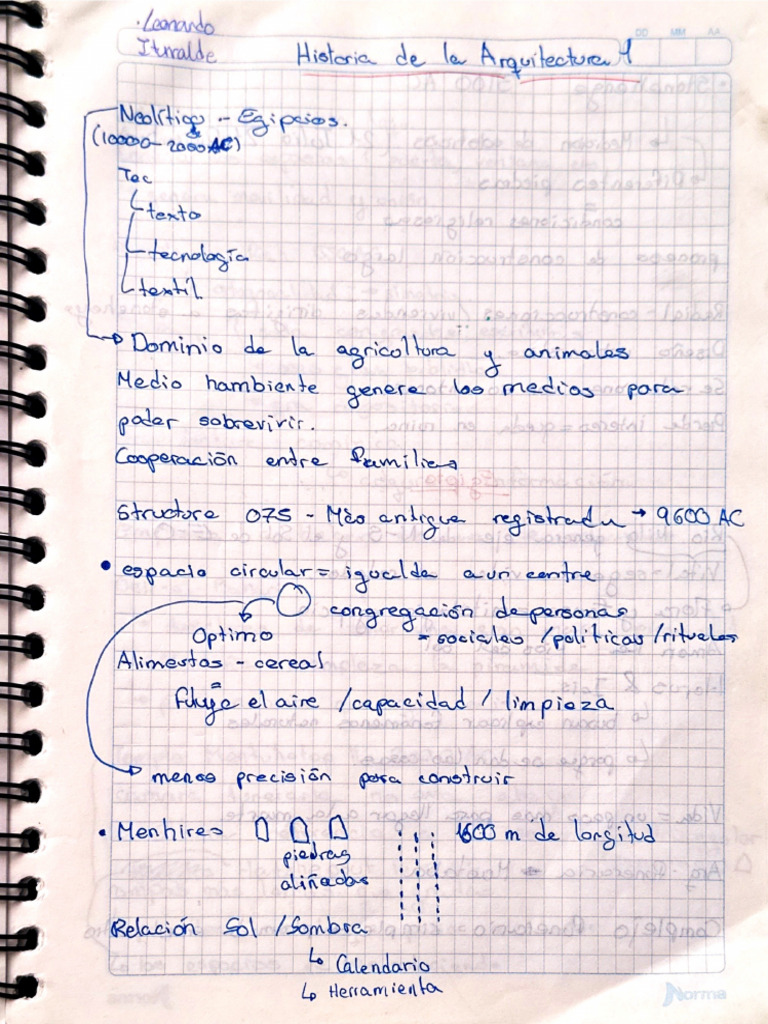 Leonardo
Iturralde
Historia de la Arquitectura 1
DD MM AA
Neolítigo - Egipcios.
(10000 - 2000 AC)
Tec
texto
tecnología
textíl
Dominio de la agricoltura y animales
Medio hambiente genere los medios para
poder sobrevivir.
Cooperación entre familias
Structure 075 - Màs antigua registrada → 9600 AC
• espacio circular = igualda a un centre
congregación de personas
Optimo = sociales / politicas / rituales
Alimestos - cereal
=
fluye el aire / capacidad / limpieza
menos precisión para construir
• Menhires 1600 m de longitud
piedras
aliñadas
Relación Sol / Sombra
↳ Calendario
↳ Herramienta
Norma